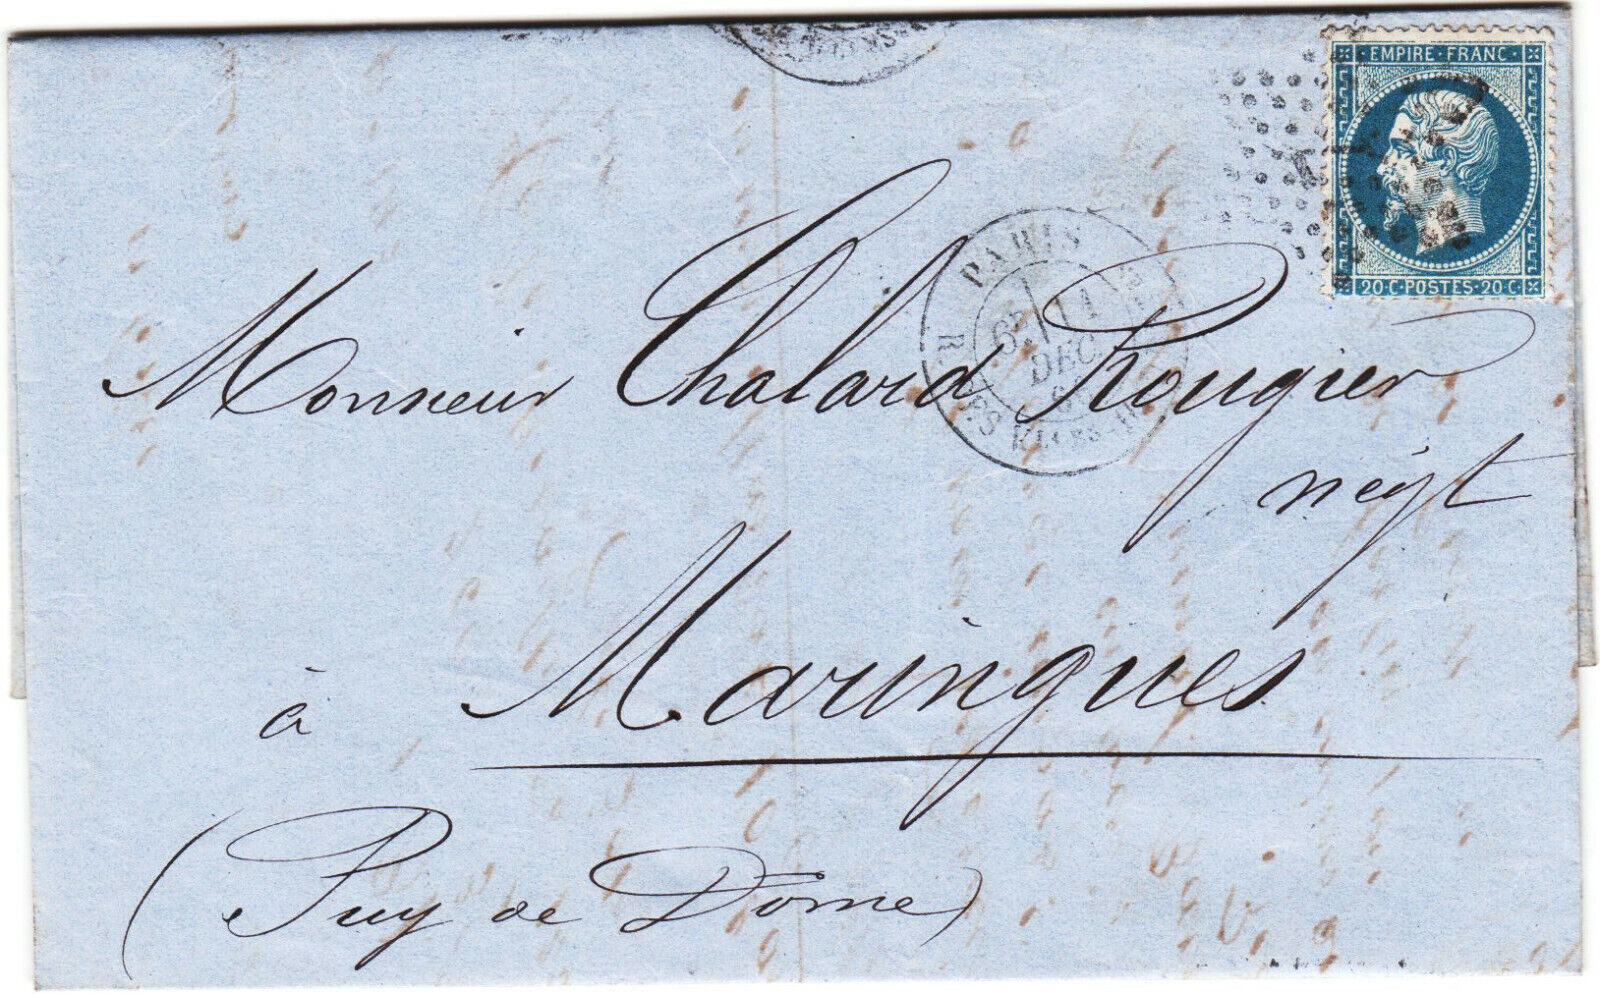 EMPIRE · FRANC ·
20 · C · POSTES · 20 · C
PARIS
6E
11
DEC.
Monsieur Chalard Rougier
negt
à Maringues
(Puy de Dôme)